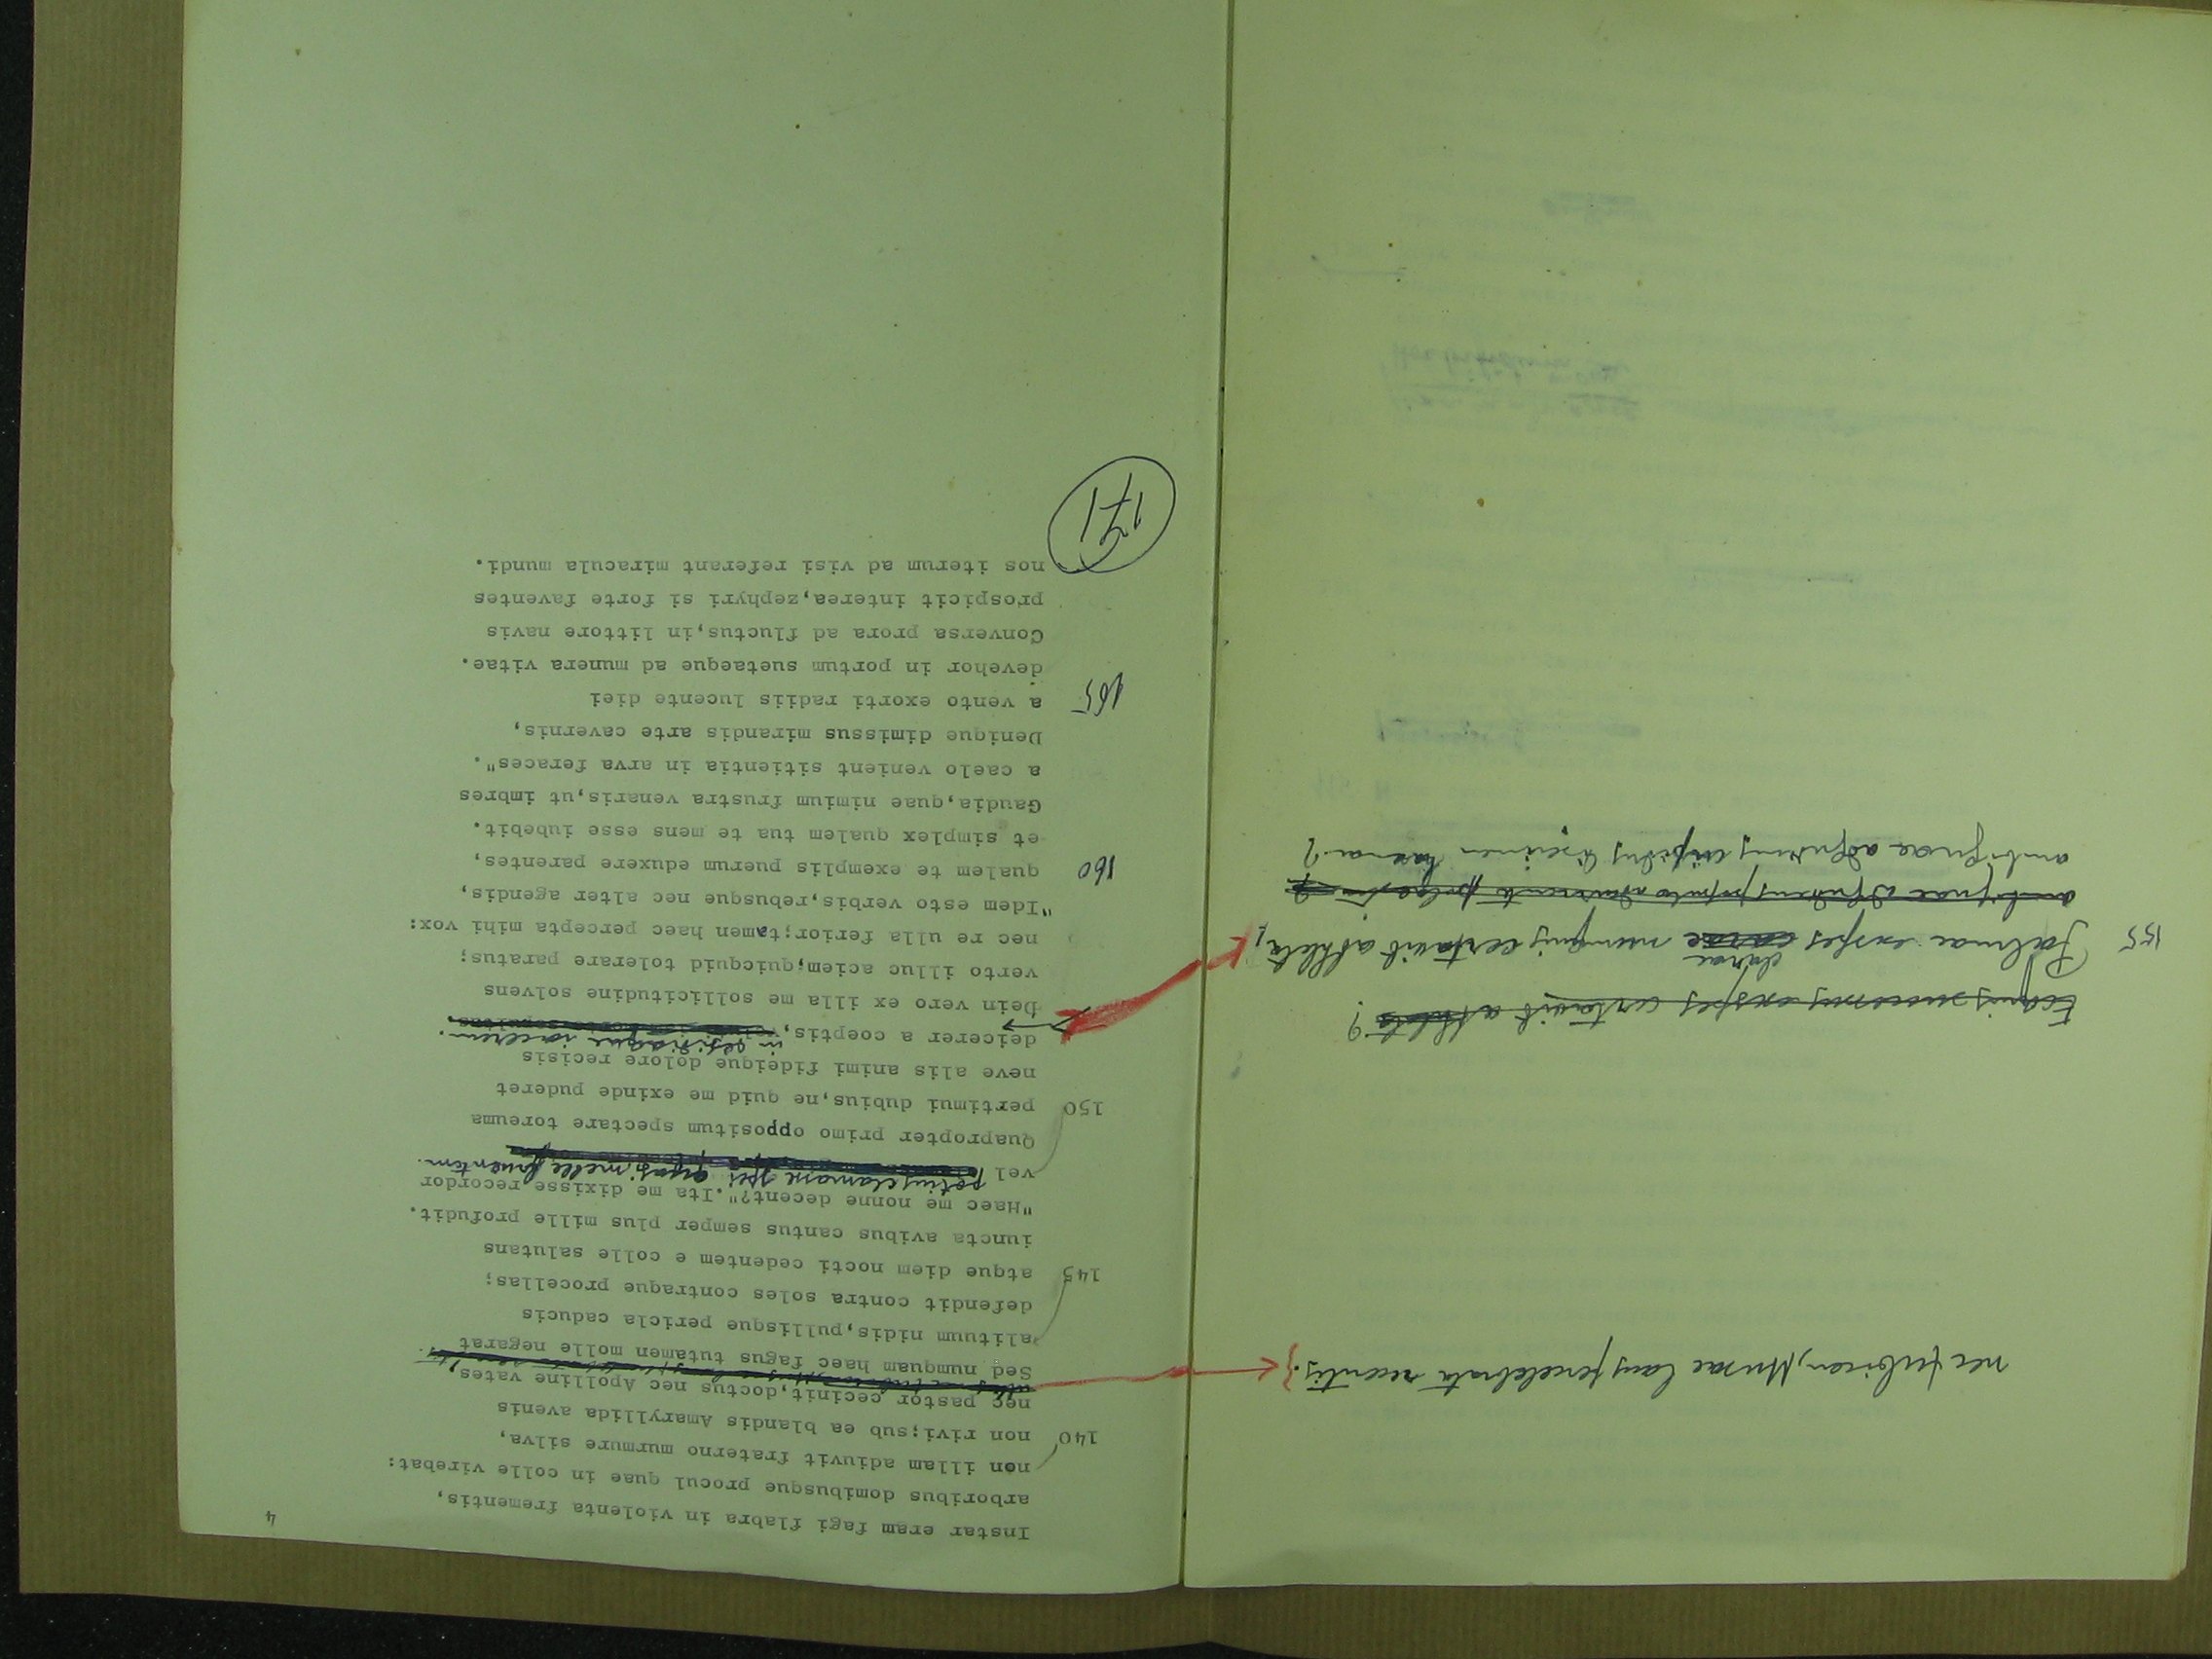 nec tubicen, Musae laus percelebrata recentis.
Ecquis successus exspes certavit athleta?
155 Palmae exspes durae numquis certavit athleta,
ambiguae
ambiguae discrimen
4
Instar eram fagi flabra in violenta frementis,
arboribus domibusque procul quae in colle virebat:
non illam adiuvit fraterno murmure silva,
140 non rivi;sub ea blandis Amaryllida avenis
nec pastor cecinit,doctus nec Apolline vates,
Sed numquam haec fagus tutamen molle negarat
alituum nidis,pullisque pericla caducis
defendit contra soles contraque procellas;
145 atque diem nocti cedentem e colle salutans
iuncta avibus cantus semper plus mille profudit.
"Haec me nonne decent?".Ita me dixisse recordor
vel potius clamasse spei quasi melle fruentem.
Quapropter primo oppositum spectare toreuma
150 pertimui dubius,ne quid me exinde puderet
neve alis animi fideique dolore recisis
deicerer a coeptis, in segnitiaque iacerem.
Dein vero ex illa me sollicitudine solvens
verto illuc aciem;quicquid tolerare paratus;
nec re ulla ferior;tamen haec percepta mihi vox:
"Idem esto verbis,rebusque nec alter agendis,
160 qualem te exemplis puerum eduxere parentes,
et simplex qualem tua te mens esse iubebit.
Gaudia,quae nimium frustra venaris,ut imbres
a caelo venient sitientia in arva feraces".
Denique dimissus mirandis arte cavernis,
165 a vento exorti radiis lucente diei
devehor in portum suetaeque ad munera vitae.
Conversa prora ad fluctus,in littore navis
prospicit interea,zephyri si forte faventes
nos iterum ad visi referant miracula mundi.
171